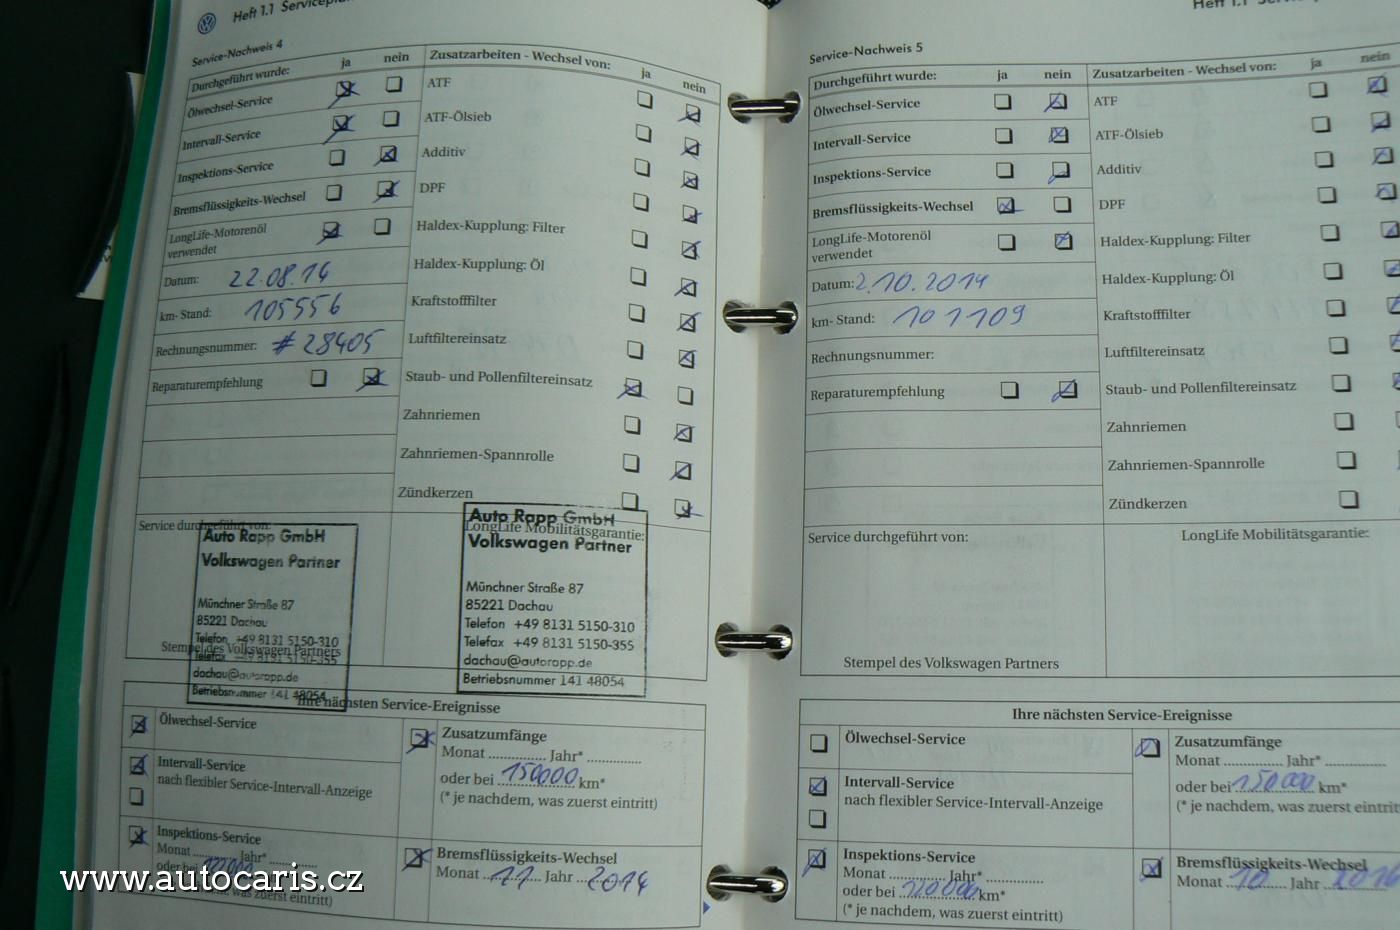 Heft 1.1 Serviceplan
Service-Nachweis 4
Durchgeführt wurde: ja nein
Ölwechsel-Service
Intervall-Service
Inspektions-Service
Bremsflüssigkeits-Wechsel
LongLife-Motorenöl
verwendet
Datum: 22.08.14
km- Stand: 105556
Rechnungsnummer: #28405
Reparaturempfehlung
Zusatzarbeiten - Wechsel von: ja nein
ATF
ATF-Ölsieb
Additiv
DPF
Haldex-Kupplung: Filter
Haldex-Kupplung: Öl
Kraftstofffilter
Luftfiltereinsatz
Staub- und Pollenfiltereinsatz
Zahnriemen
Zahnriemen-Spannrolle
Zündkerzen
Service durchgeführt von:
Auto Rapp GmbH
Volkswagen Partner
Münchner Straße 87
85221 Dachau
Telefon +49 8131 5150-310
Telefax +49 8131 5150-355
dachau@autorapp.de
Betriebsnummer 141 48054
Stempel des Volkswagen Partners
LongLife Mobilitätsgarantie:
Auto Rapp GmbH
Volkswagen Partner
Münchner Straße 87
85221 Dachau
Telefon +49 8131 5150-310
Telefax +49 8131 5150-355
dachau@autorapp.de
Betriebsnummer 141 48054
Ihre nächsten Service-Ereignisse
Ölwechsel-Service
Intervall-Service
nach flexibler Service-Intervall-Anzeige
Inspektions-Service
Monat ............ Jahr* ..............
oder bei km*
(* je nachdem, was zuerst eintritt)
Zusatzumfänge
Monat ............ Jahr* ..............
oder bei 150000 km*
(* je nachdem, was zuerst eintritt)
Bremsflüssigkeits-Wechsel
Monat 11 Jahr 2014
Heft 1.1
Service-Nachweis 5
Durchgeführt wurde: ja nein
Ölwechsel-Service
Intervall-Service
Inspektions-Service
Bremsflüssigkeits-Wechsel
LongLife-Motorenöl
verwendet
Datum: 2.10.2014
km- Stand: 101109
Rechnungsnummer:
Reparaturempfehlung
Zusatzarbeiten - Wechsel von: ja nein
ATF
ATF-Ölsieb
Additiv
DPF
Haldex-Kupplung: Filter
Haldex-Kupplung: Öl
Kraftstofffilter
Luftfiltereinsatz
Staub- und Pollenfiltereinsatz
Zahnriemen
Zahnriemen-Spannrolle
Zündkerzen
Service durchgeführt von:
Stempel des Volkswagen Partners
LongLife Mobilitätsgarantie:
Ihre nächsten Service-Ereignisse
Ölwechsel-Service
Intervall-Service
nach flexibler Service-Intervall-Anzeige
Inspektions-Service
Monat ............ Jahr* ..............
oder bei 120000 km*
(* je nachdem, was zuerst eintritt)
Zusatzumfänge
Monat ............ Jahr* ..............
oder bei 150000 km*
(* je nachdem, was zuerst eintritt
Bremsflüssigkeits-Wechsel
Monat 10 Jahr 2016
www.autocaris.cz